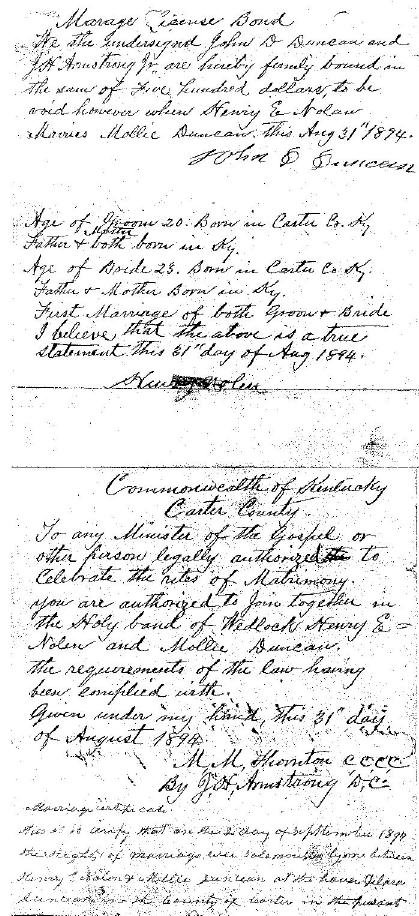 Marage License Bond
We the undersignd John D Duncan and
J.H. Armstrong Jr are hereby firmly bound in
the sum of Five hundred dollars, to be
void however when Henry E Nolan
Marries Mollie Duncan, this Aug 31st 1894.
John D Duncan
Age of Groom 20. Born in Carter Co. Ky
Father & Mother both born in Ky.
Age of Bride 23. Born in Carter Co Ky.
Father & Mother Born in Ky.
First Marriage of both Groom & Bride
I believe that the above is a true
statement this 31st day of Aug 1894.
Henry Nolen
Commonwealth of Kentucky
Carter County.
To any Minister of the Gospel or
other person legally authorized to
Celebrate the rites of Matrimony.
you are authorized to Join together in
the Holy band of Wedlock Henry E =
Nolen and Mollie Duncan.
the requirements of the law having
been complied with.
Given under my hand, this 31st day
of August 1894
M M Thornton CCCC
By J.H. Armstrong D.C.
Marriage certificate.
this is to certify that on the 2 day of september 1894
the rights of marriage were solemnized by me between
Henry E Nolen & Mollie Duncan at the house of
Duncan in the County of Carter in the